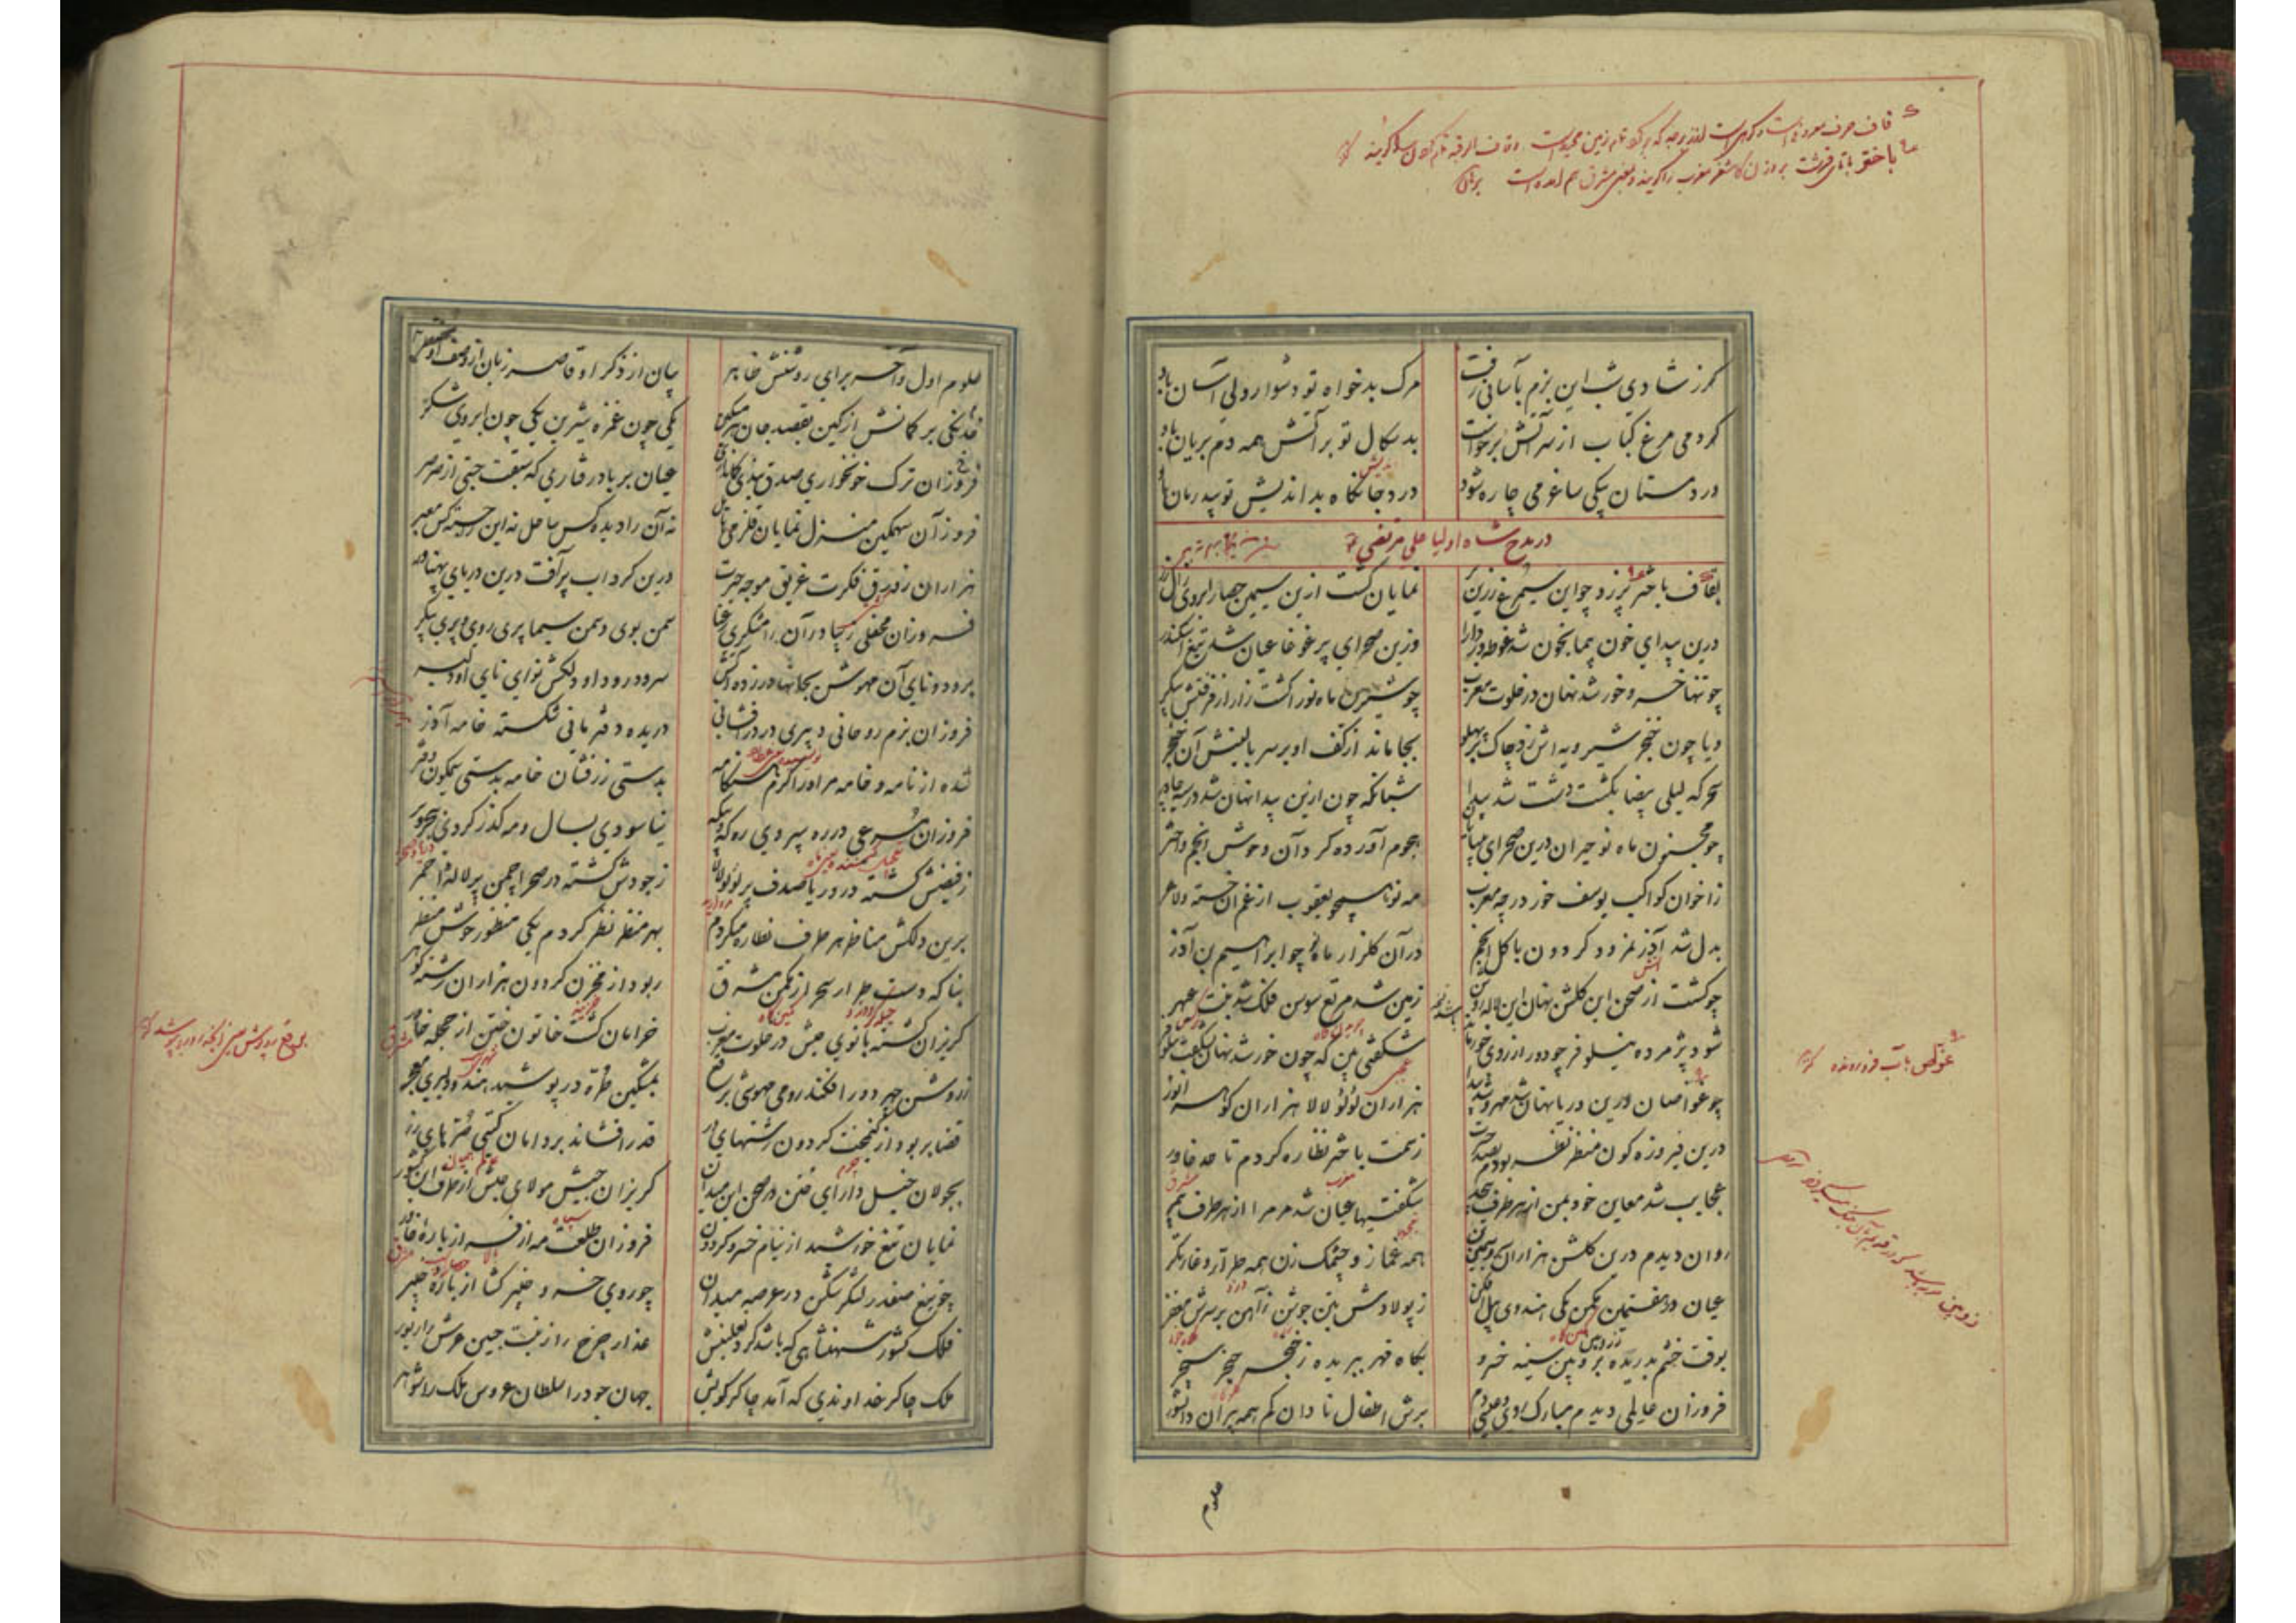 کرز شادی شب این بزم بآسانی رفت
مرگ بدخواه تو دشوار ولی آسان باد
گر دمی مرغ کباب از سر آتش برخواست
بدسکال تو بر آتش همه دم بریان باد
درد مستان بیکی ساغر می چاره شود
درد جانکاه بداندیش تو بیدرمان باد
در مدح شاه اولیا علی مرتضی
بقاف باختر پر زد چو این سیمرغ زرین پر
نمایان گشت ازین سیمین حصار ابروی زال زر
درین بیدای خون پیما بخون شد غوطه ور دارا
وزین صحرای پرغوغا عیان شد تیغ اسکندر
چو تنها خسرو خورشد نهان در خلوت مغرب
چو شیرین ماه نو را گشت زار از فرقتش پیکر
ویا چون خنجر شیرویه اش زد چاک بر پهلو
بجا ماند از کف او بر سر بالینش آن خنجر
سحرگه لیلی بیضا بگشت دشت شد پیدا
شبانگه چون ازین بیدا نهان شد در سیه چادر
چو مجنون ماه نو حیران درین صحرای بی پایان
هجوم آورده گرد آن وحوش انجم و اختر
ز اخوان کواکب یوسف خور در چه مغرب
مه نو همچو یعقوب از غم آن خسته و لاغر
بدل شد آذر نمرود گردون با گل انجم
در آن گلزار ماه نو چو ابراهیم بن آذر
چو گشت از صحن این گلشن نهان این لاله روشن
زمین شد مرتع سوسن فلک شد منبت عبهر
شود پژمرده نیلوفر چو دور از روی خور ماند
شگفتی بین که چون خورشد نهان بشگفت نیلوفر
چو غواصان درین دریا نهان شد مهر و شد پیدا
هزاران لؤلؤ لالا هزاران گوهر انور
درین فیروزه گون منظر نظر بودم بصد حیرت
ز سمت باختر نظاره کردم تا حد خاور
عجایب شد معاین خود بمن از هر طرف بیحد
شگفتیها عیان شد مر مرا از هر طرف بیمر
روان دیدم درین گلشن هزاران لعبت سیمین تن
همه غماز و چشمک زن همه طرار و غارتگر
عیان در هفتمین مکمن یکی هندوی پیل افکن
ز پولادش بتن جوشن ز آهن بر سرش مغفر
بوقت خشم بدریده بزوبین سینه خسرو
بگاه قهر ببریده ز خنجر حنجر سنجر
فروزان عالمی دیدم مبارک روی و عیسی دم
برش اطفال نادان کم همه پیران دانشور
علوم اول و آخر برای روشنش ظاهر
بیان از ذکر او قاصر زبان از وصف او مضطر
خدنگی بر کمانش از کین بقصد جان هر مسکین
یکی چون غمزه شیرین یکی چون ابروی شکر
فروزان ترک خونخواری
عیان بر بادرفتاری که سبقت جستی از صرصر
فروزان سهمگین منزل نمایان قلزمی هایل
نه آن را دیده کس ساحل نه این را جسته کس معبر
هزاران زورق فکرت غریق موجه حیرت
درین گرداب پرآفت درین دریای پهناور
فروزان محفلی زیبا در آن رامشگری رعنا
سمن بوی و سمن سیما پری روی و پری پیکر
برود و نای آن مهوش بجانها در زده آتش
سرود رود او دلکش نوای نای او دلبر
فروزان بزم روحانی دبیری در درافشانی
دریده دفتر مانی شکسته خامه آذر
شده از نامه و خامه مر او را گرم هنگامه
بدستی زرفشان خامه بدستی سیمگون دفتر
فروزان مسرعی در ره سپردی ره گه و بیگه
نیاسودی بسال و مه گذر کردی ببحر و بر
ز فیضش گشته در دریا صدف پر لؤلؤ لالا
ز جودش گشته در صحرا چمن پر لاله احمر
برین دلکش مناظر هر طرف نظاره میکردم
بهر منظر نظر کردم یکی منظور خوش منظر
بناگه دست طرار سحر از مکمن مشرق
ربود از مخزن گردون هزاران رشته گوهر
گریزان گشته بانوی حبش در خلوت مغرب
خرامان گشت خاتون ختن از حجله خاور
ز روشن چهر دور افکند رومی مهوشی برقع
بمشکین طره در پوشید هندو دلبری معجر
قضا بربود از گنجت گردون رشتهای در
قدر افشاند بر دامان گیتی خرمنهای زر
بجولان خیل دارای ختن در صحن این میدان
گریزان جیش مولای حبش از طرف این کشور
نمایان تیغ خورشید از نیام خسرو گردون
فروزان طلعت مه از فسر از باره خاور
چو تیغ صفدر لشکر شکن در عرصه میدان
چو روی خسرو خیبر گشا از باره خیبر
فلک کشور شهنشاهی که باشد گرد نعلینش
عذار چرخ را زینت جبین عرش را زیور
ملک چاکر خداوندی که آمد چاکر کویش
جهان جود را سلطان عروس ملک را شوهر
غواص بآب فرورونده